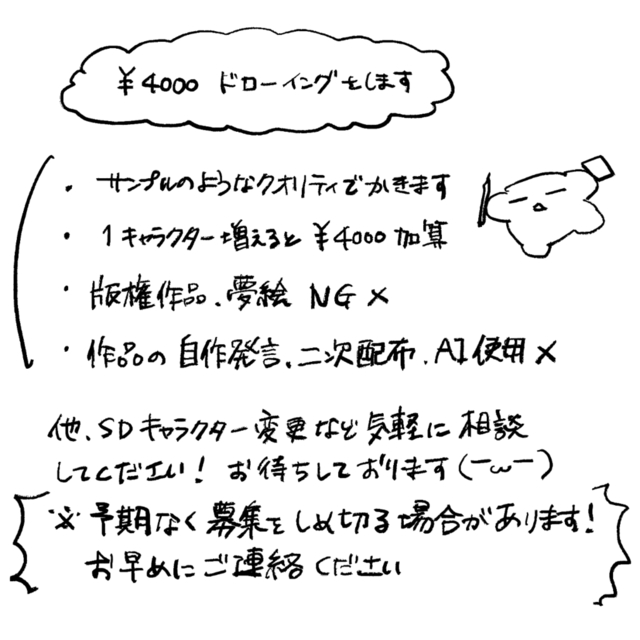 ¥4000 ドローイングをします
・サンプルのようなクオリティでかきます
・1キャラクター増えると ¥4000 加算
・版権作品、夢絵 NG ×
・作品の自作発言、二次配布、AI使用 ×
他、SDキャラクター変更など気軽に相談
してください! お待ちしております(ーωー)
※予期なく募集をしめ切る場合があります!
お早めにご連絡ください